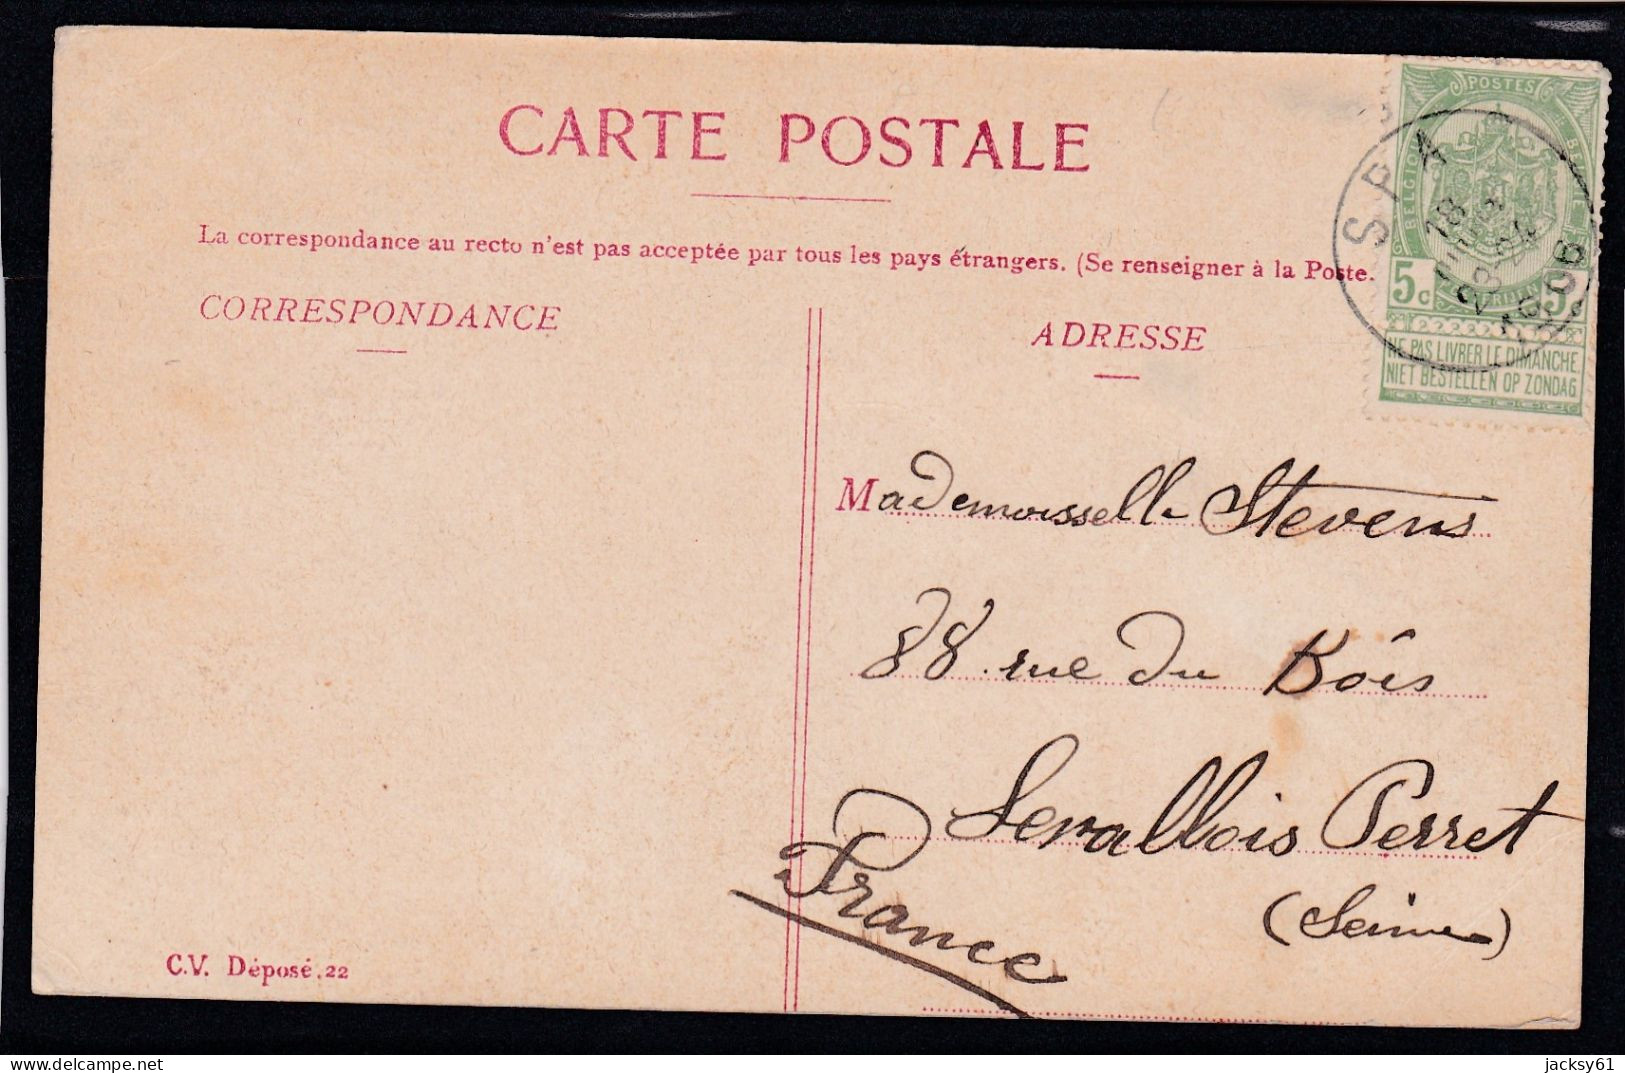 CARTE POSTALE
La correspondance au recto n'est pas acceptée par tous les pays étrangers. (Se renseigner à la Poste.
CORRESPONDANCE
ADRESSE
POSTES
BELGIQUE
5c
NE PAS LIVRER LE DIMANCHE.
NIET BESTELLEN OP ZONDAG
SPA
Mademoisselle Stevens
88 rue du Bois
Levallois Perret
(Seine)
France
C.V. Déposé.22
https://www.delcampe.net
jacksy61